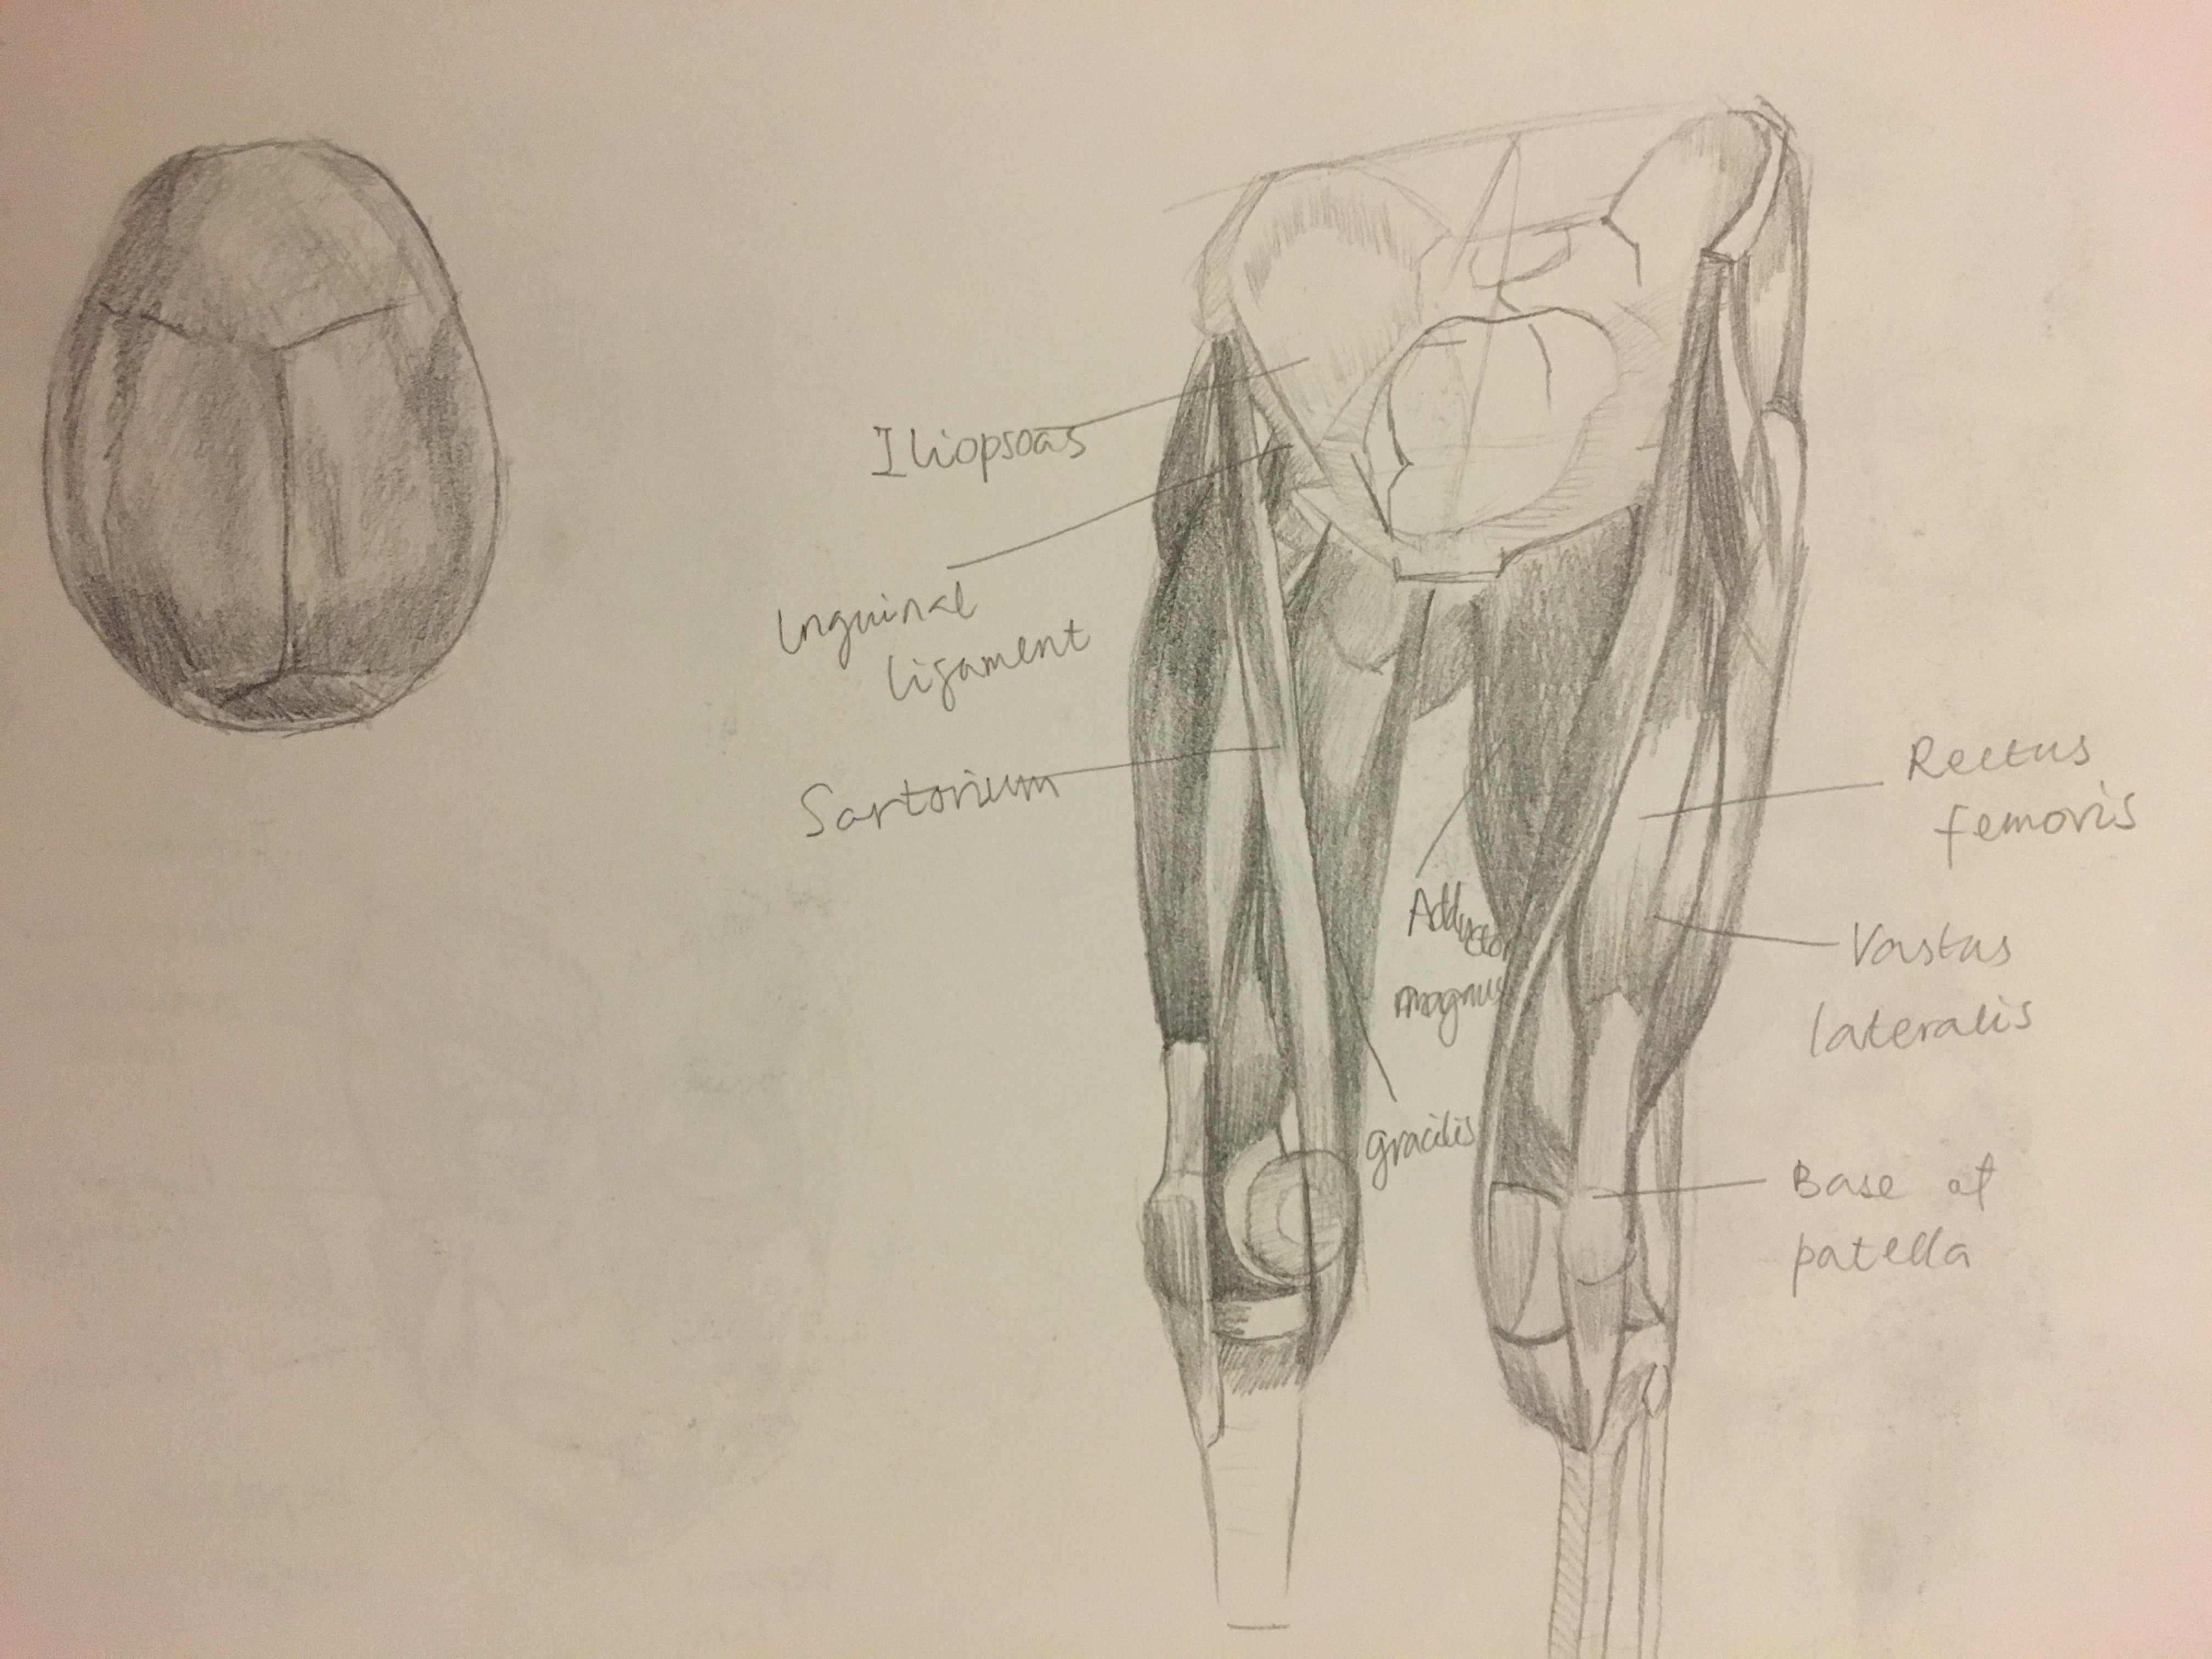 Iliopsoas
Inguinal
ligament
Sartorium
Adductor
magnus
gracilis
Rectus
femoris
Vastus
lateralis
Base of
patella